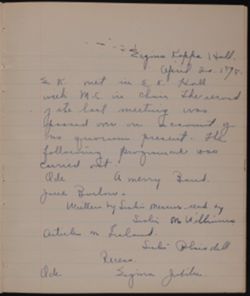 Sigma Kappa Hall.
April 20, 1895.
S. K. met in S. K. Hall
with M.C. in chair. The record
of the last meeting was
passed over on account of
no quorum present. The
following programme was
carried out.
Ode A merry Band.
Written by Sister read by
Sister Mc Williams
Article on Leland.
Sister Blaisdell
Recess.
Ode Sigma Jubilee